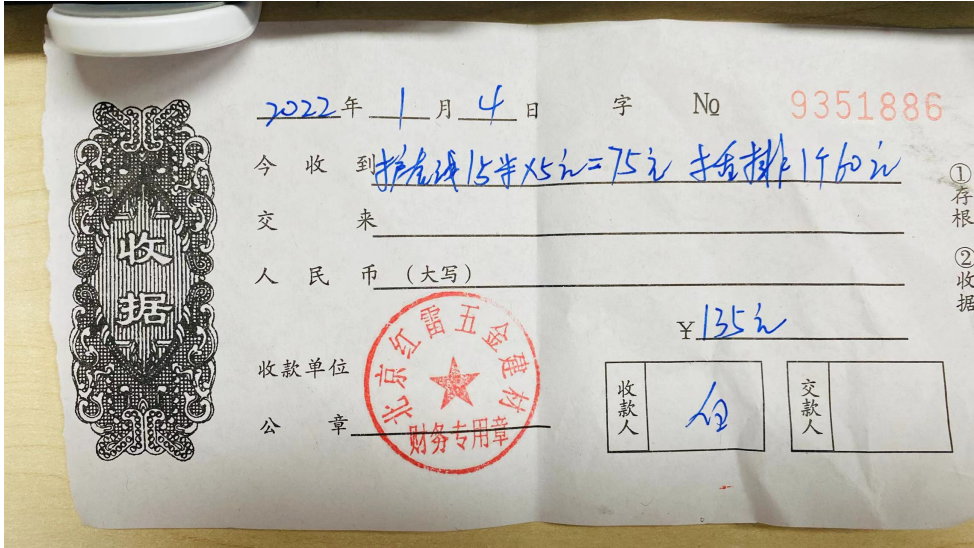 2022年1月4日 字 № 9351886
今收到护套线15米×5元=75元 插排1个60元
交来
人民币（大写）
¥135元
收款单位
公章
收款人
交款人
北京红雷五金建材
财务专用章
收据
①存根
②收据